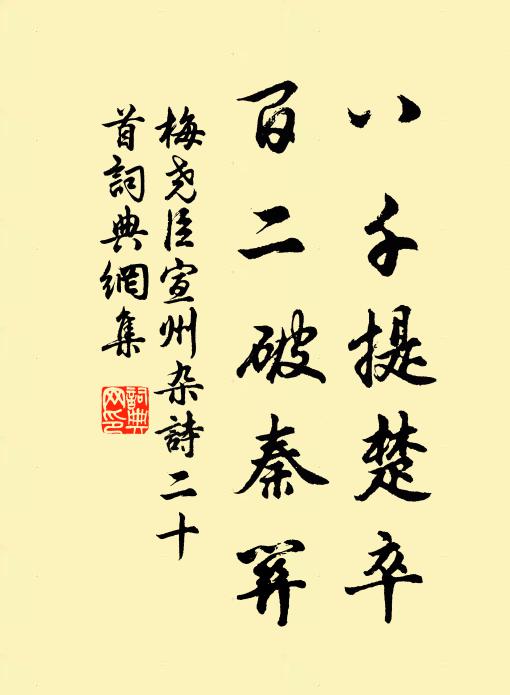 八千提楚卒
百二破秦關
梅尧臣宣州杂詩二十
首詞典網集
詞典网印